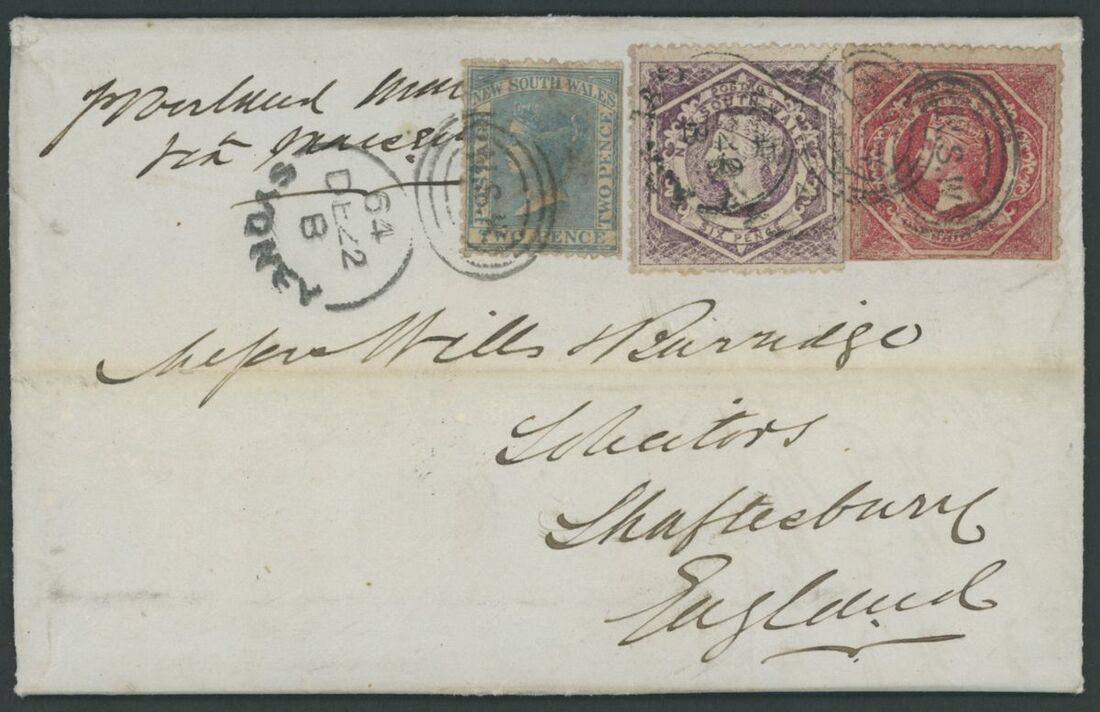 pr Overland Mail
via Marseilles
NEW SOUTH WALES
POSTAGE
TWO PENCE
TWO PENCE
POSTAGE
SOUTH WALES
SIX PENCE
SHILLING
N.S.W
N.S.W
SYDNEY
64
DE 22
B
Messrs Wills & Burridge
Solicitors
Shaftesbury
England